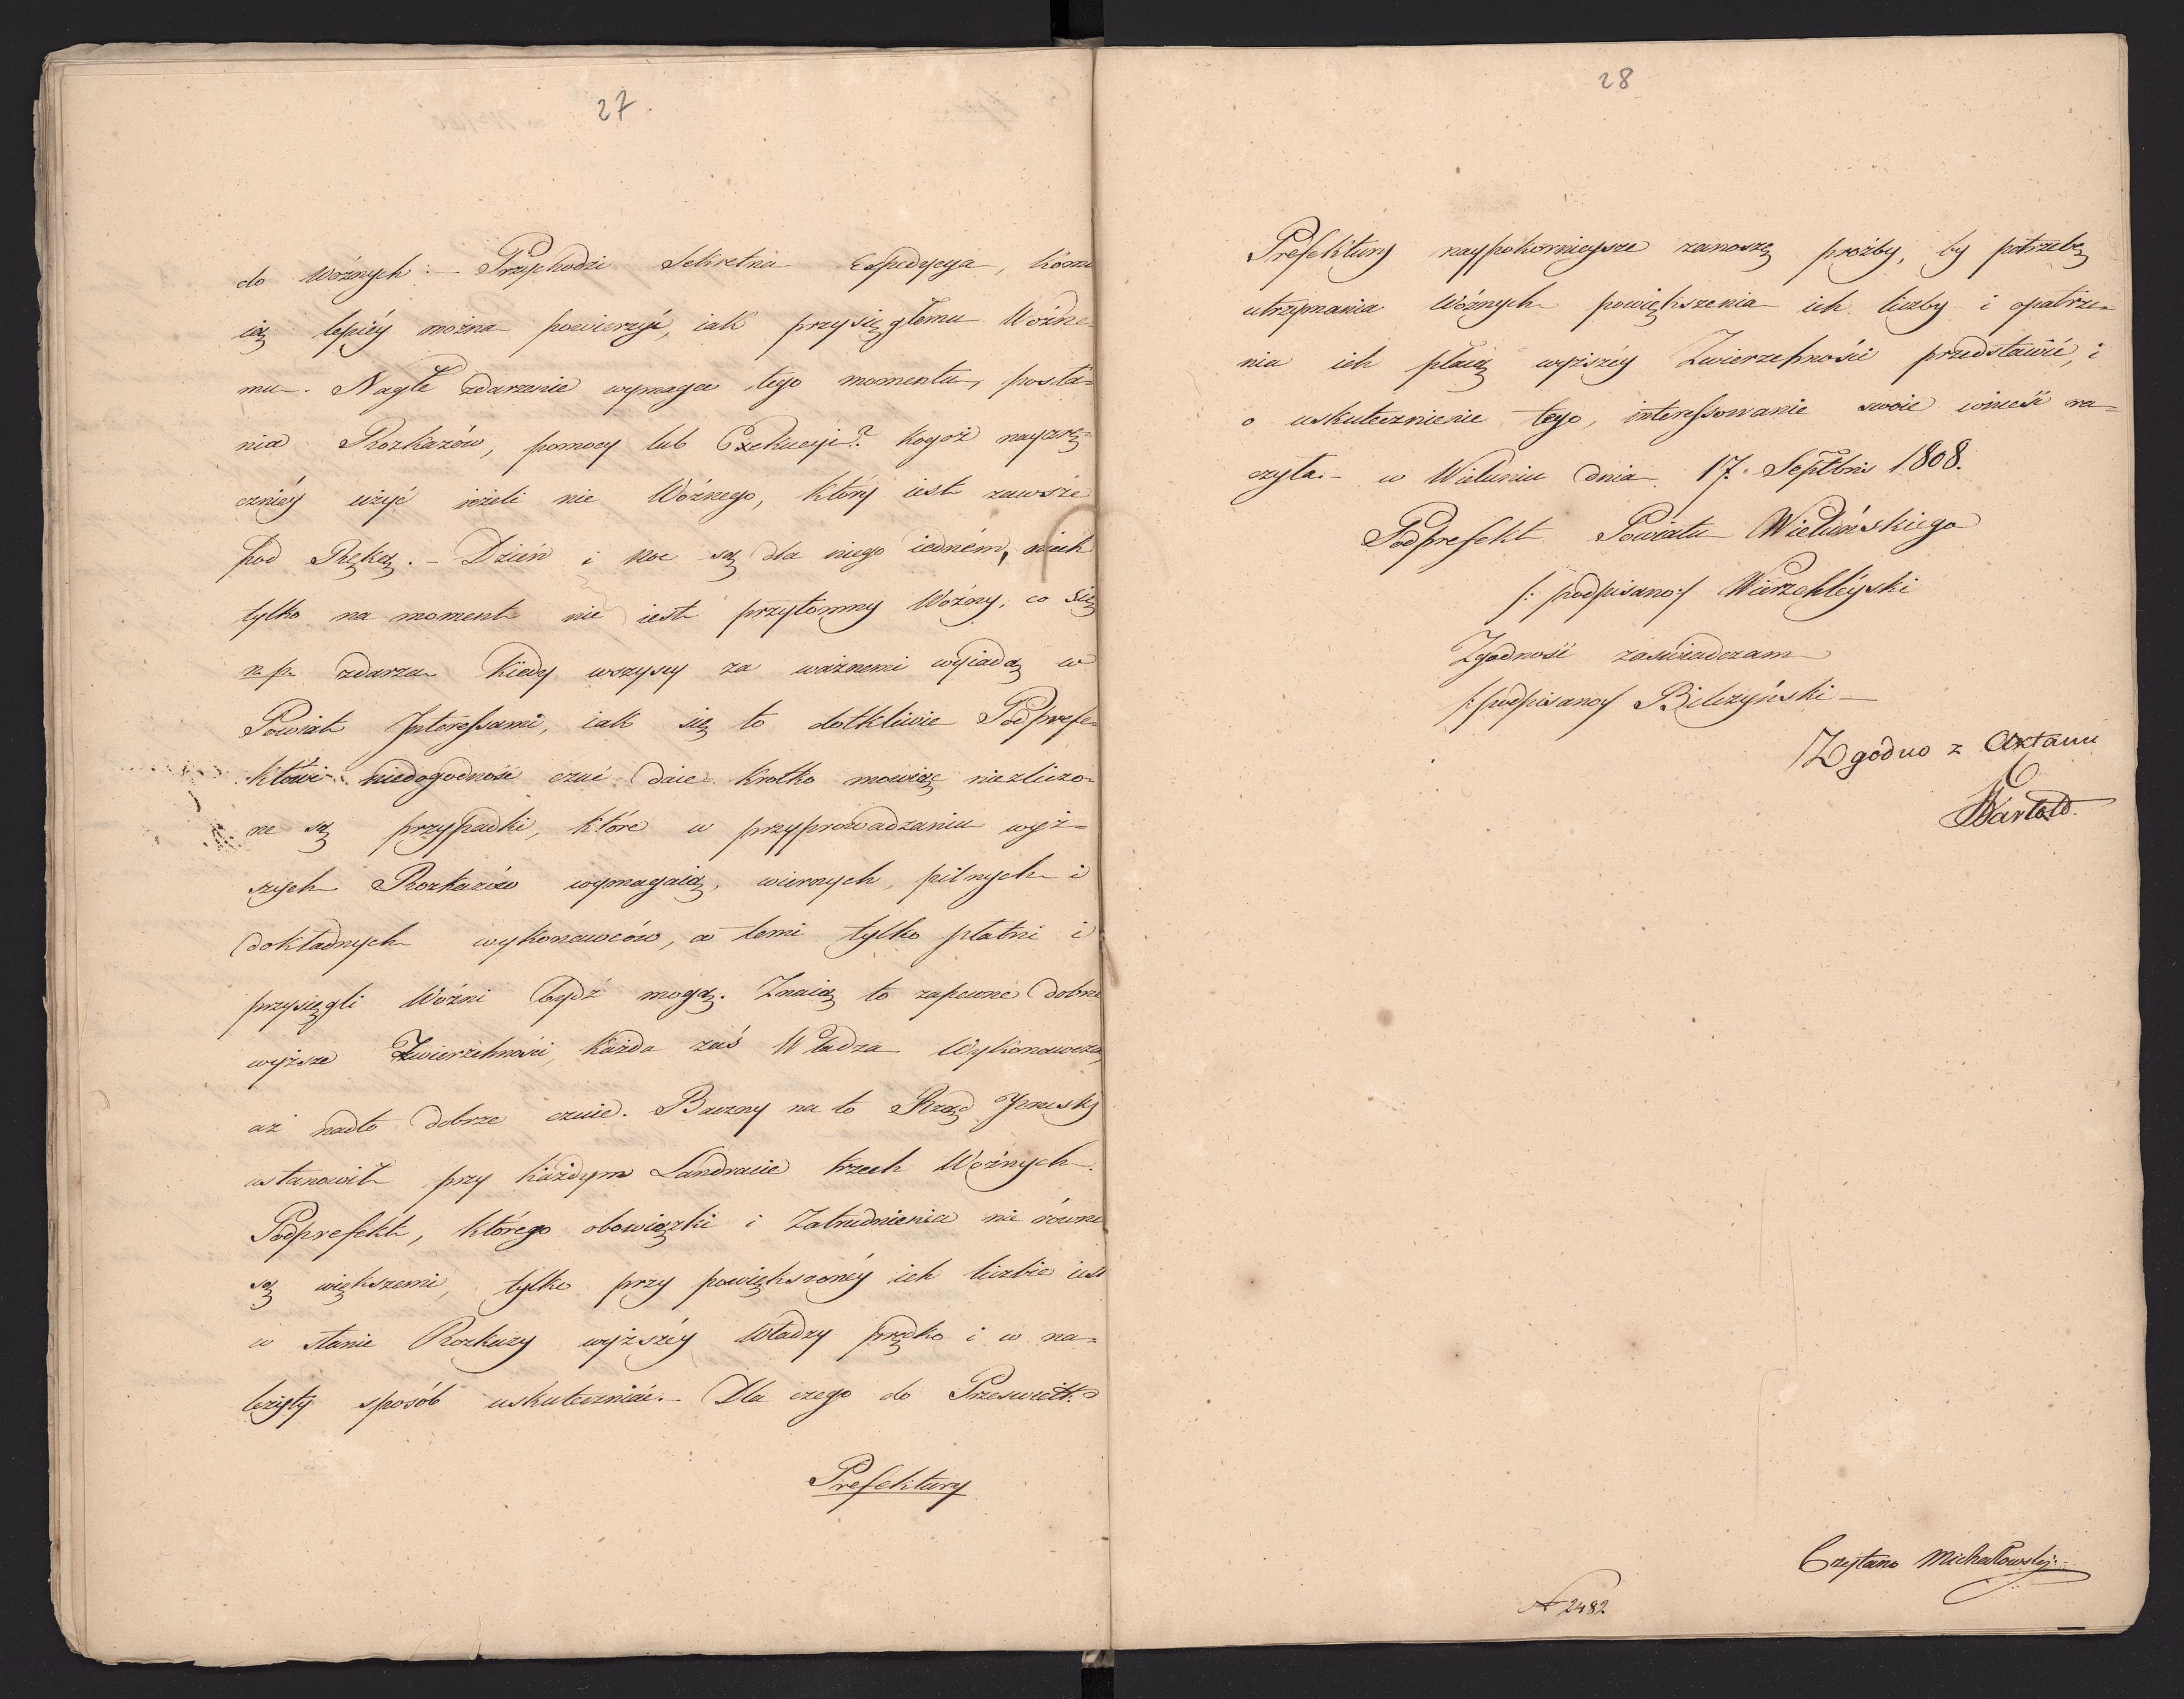 27.
do Woźnych: – Przychodzi Sekretna Expedycya, komu
ią lepiéy można powierzyć, iak przysięgłemu Woźne-
mu. Nagłe zdarzenie wymaga tego momentu, posła-
nia Rozkazów, pomocy lub Exekucyi? kogoż nayzrę-
czniéy użyć ieżeli nie Woźnego, który iest zawsze
pod Ręką. – Dzień i noc są dla niego iedném, niech
tylko na moment nie iest przytomny Woźny, co się
n. p. zdarza kiedy wszyscy za ważnemi wyiadą w
Powiat Interessami, iak się to dotkliwie Podprefe-
ktowi niedogodność czuć daie. krotko mowiąc niezliczo-
ne są przypadki, które w przyprowadzaniu wyż-
szych Rozkazów wymagaią, wiernych, pilnych i
dokładnych wykonawców, a temi tylko płatni i
przysięgli Woźni bydź mogą. Znaią to zapewne dobrze
wyższe Zwierzchności, każda zaś Władza Wykonawcza,
aż nadto dobrze czuie. Baczny na to Rząd Pruski
ustanowił przy każdym Landracie trzech Woźnych.
Podprefekt, którego obowiązki i Zatrudnienia nie równe
są większemi, tylko przy powiększonéy ich liczbie iest
w stanie Rozkazy wyższéy Władzy prędko i w na-
leżyty sposób uskuteczniać. – Dla czego do Przeświett:
Prefektury
28
Prefektury naypokorniejsze zanoszę prożby, by potrzebę
utrzymania Woźnych powiększenia ich liczby i opatrze-
nia ich płacą wyższéy Zwierzchności przedstawić, i
o uskutecznienie tego, interessowanie swoie wnieść ra-
czyła. – w Wieluniu dnia 17. Septbris 1808.
Podprefekt Powiatu Wieluńskiego
/: podpisano:/ Wierzchleyski
Zgodność zaświadczam
/: podpisano:/ Bilczyński –
Zgodno z Aktami
Czytano Michałowski
N 2482